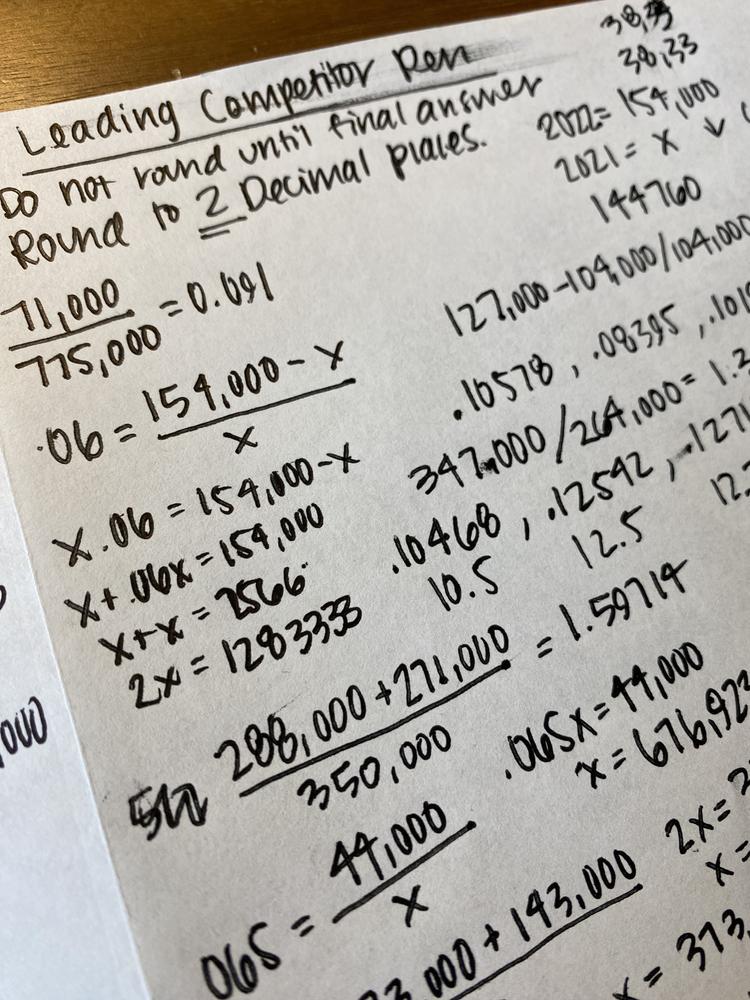 Leading Competitor Pen
Do not round until final answer
Round to 2 Decimal places.
71,000
775,000
= 0.091
.06 = 154,000 - x
x
x.06 = 154,000 - x
x + .06x = 154,000
x + x = 2566
2x = 1283333
288,000 + 271,000
350,000
= 1.59714
.065 = 44,000
x
,000 + 143,000
38,33
2022 = 154,000
2021 = x ↓
144760
127,000 - 104,000/104,000
.10578, .08395, .101
347,000/264,000 = 1.3
.10468, .12542, .1271
10.5 12.5 12.
.065x = 44,000
x = 676,923
2x = 2
x =
x = 373,
,000